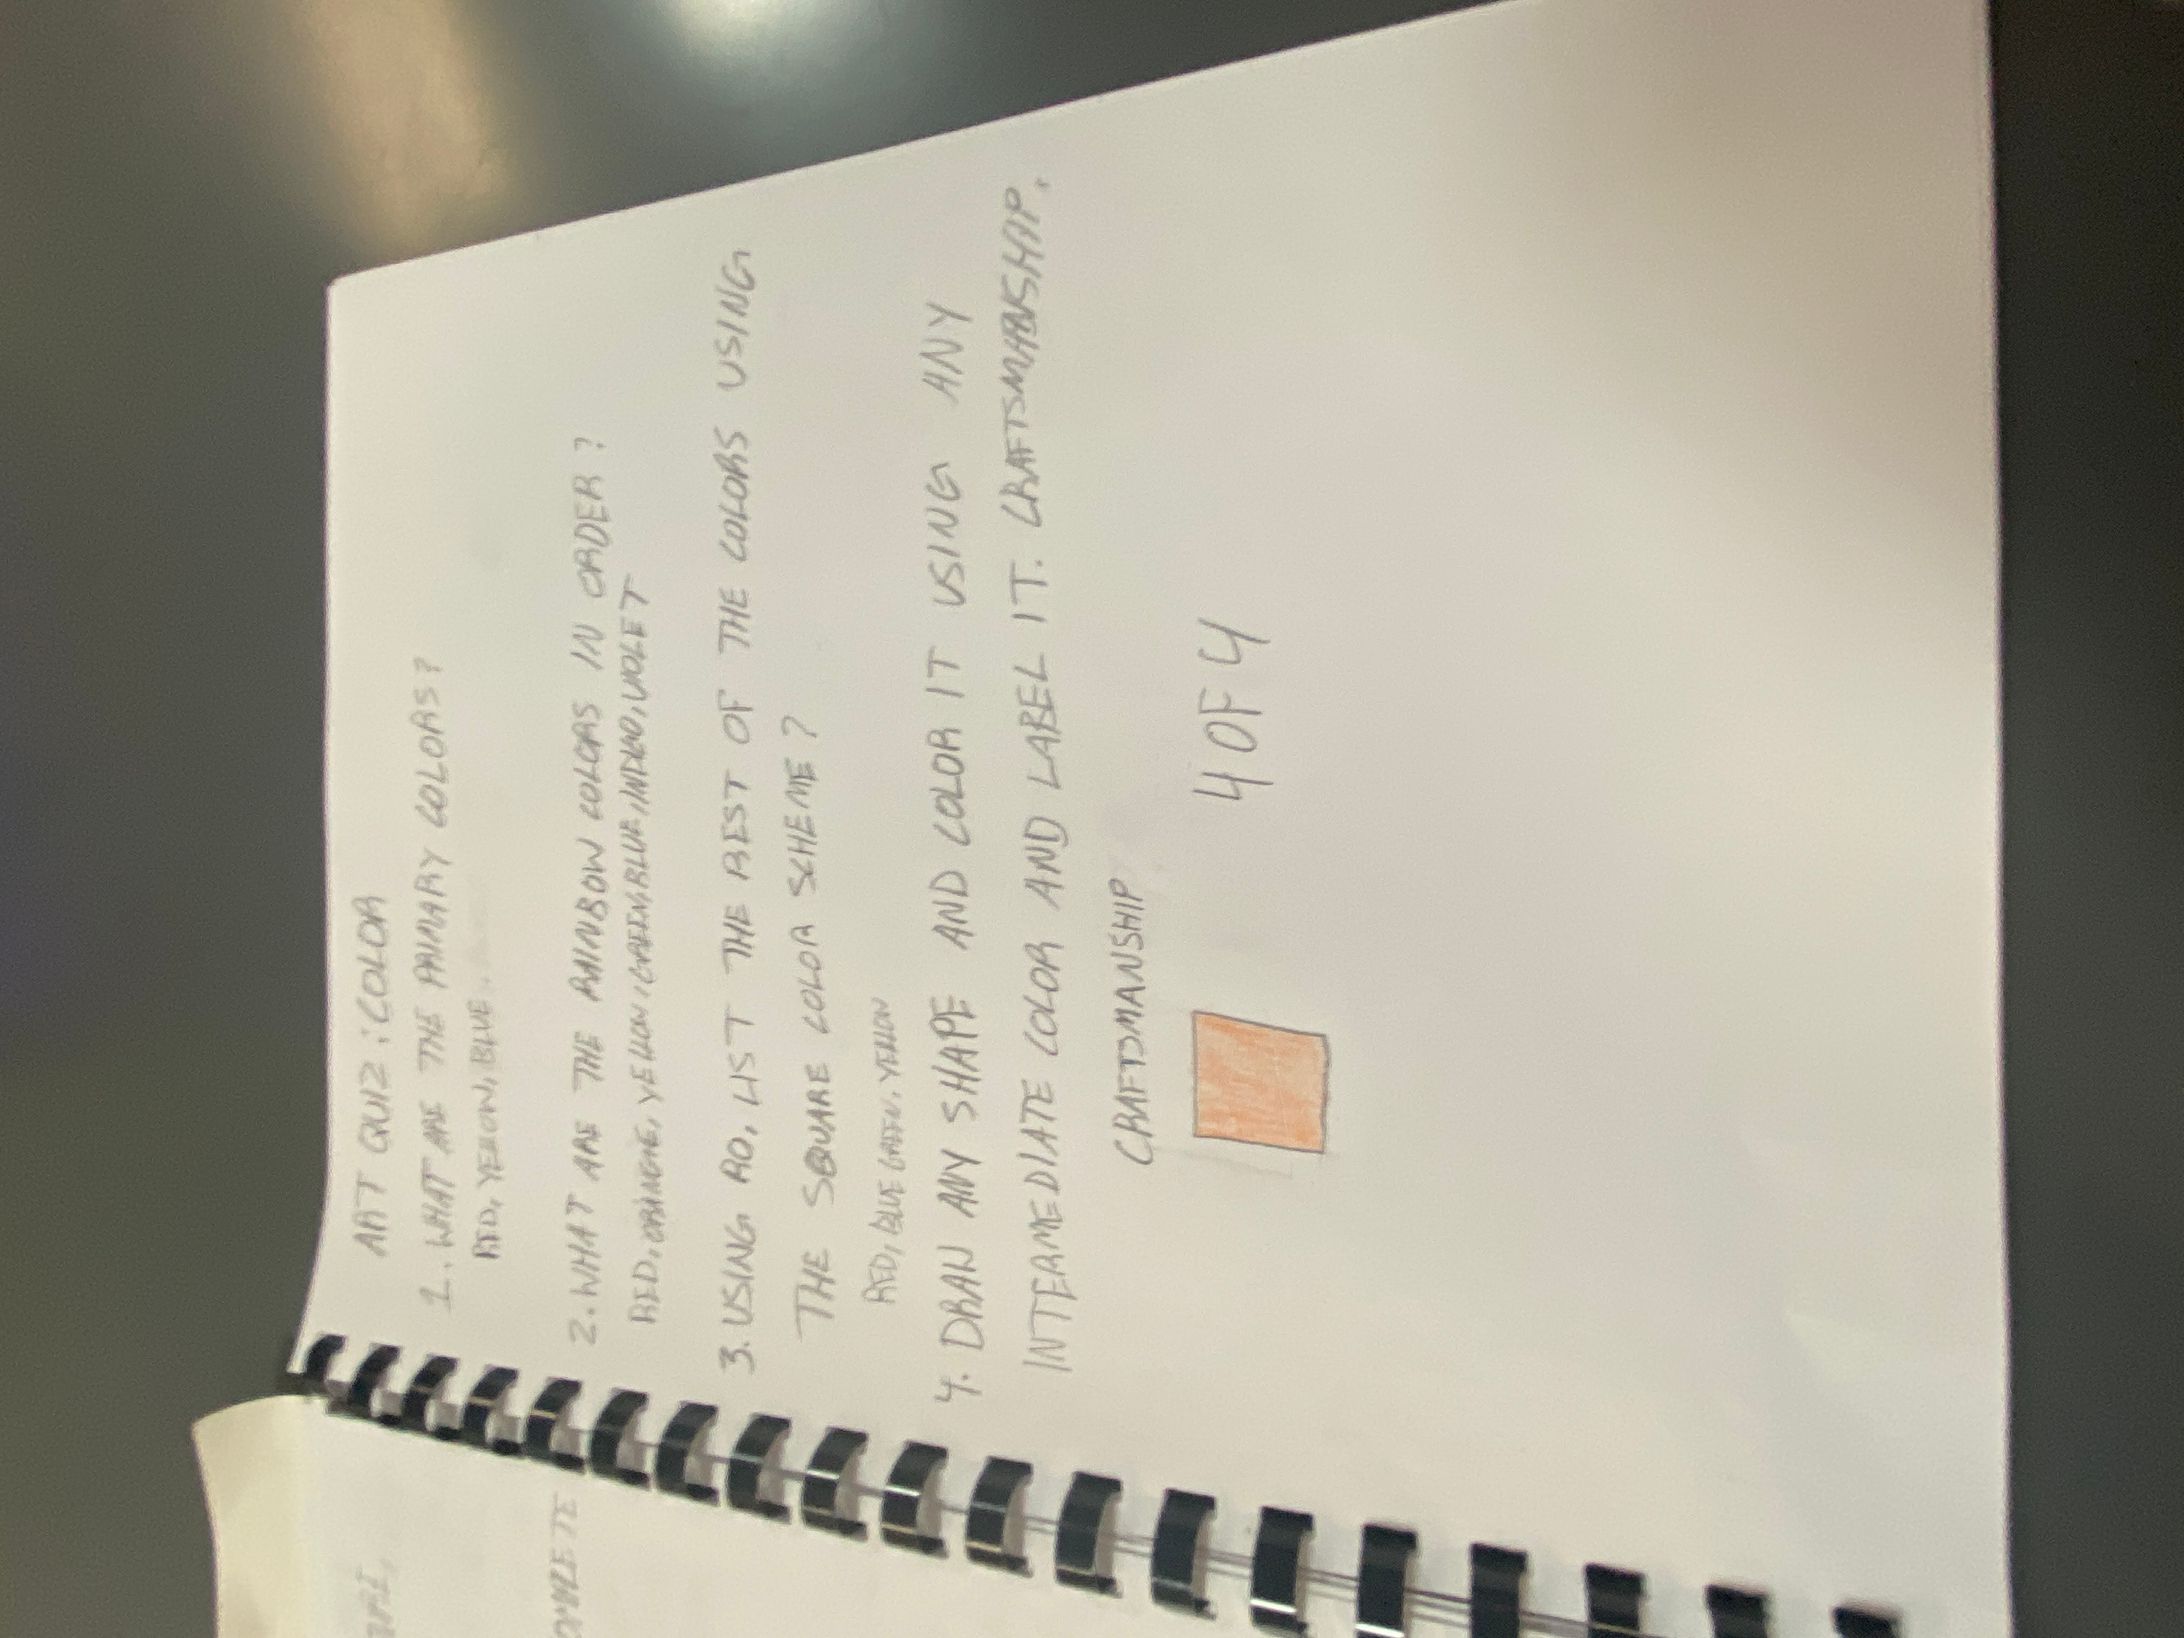 ART QUIZ: COLOR
1. WHAT ARE THE PRIMARY COLORS?
RED, YELLOW, BLUE
2. WHAT ARE THE RAINBOW COLORS IN ORDER?
RED, ORANGE, YELLOW, GREEN, BLUE, INDIGO, VIOLET
3. USING RO, LIST THE REST OF THE COLORS USING
THE SQUARE COLOR SCHEME?
RED, BLUE GREEN, YELLOW
4. DRAW ANY SHAPE AND COLOR IT USING ANY
INTERMEDIATE COLOR AND LABEL IT. CRAFTSMANSHIP.
CRAFTSMANSHIP
4 OF 4